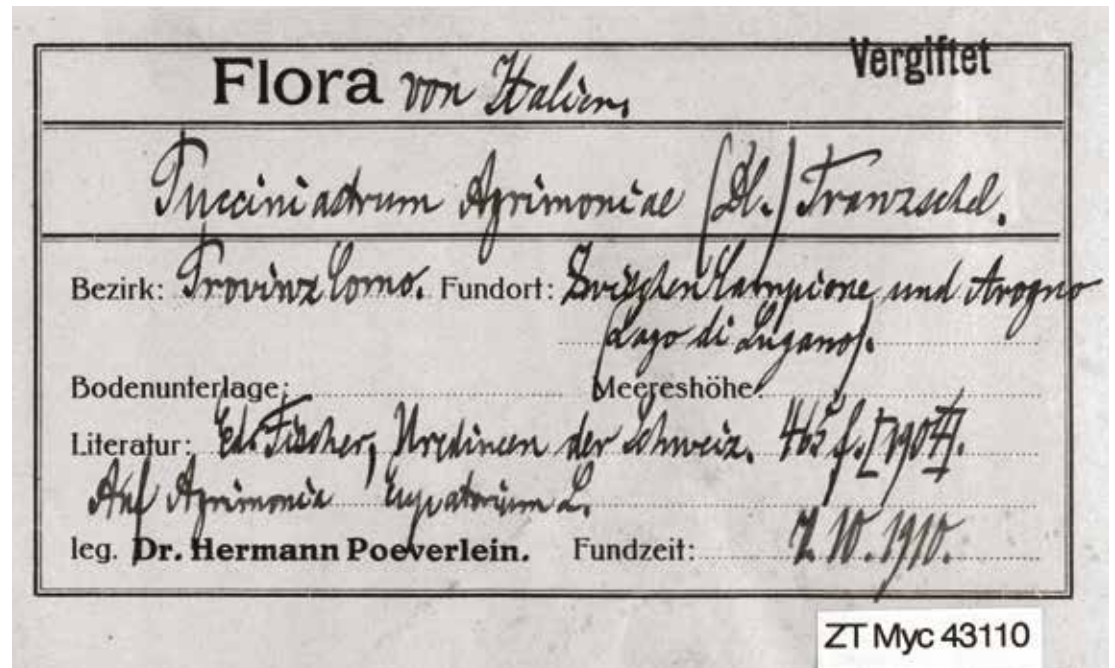 Vergiftet
Flora von Italien.
Pucciniastrum Agrimoniae (Dl.) Tranzschel.
Bezirk: Provinz Como. Fundort: Zwischen Campione und Arogno
(Lago di Lugano).
Bodenunterlage: Meereshöhe:
Literatur: Ed. Fischer, Uredineen der Schweiz. 465 f. [1904].
Auf Agrimonia Eupatorium L.
leg. Dr. Hermann Poeverlein. Fundzeit: 7. 10. 1910.
ZT Myc 43110